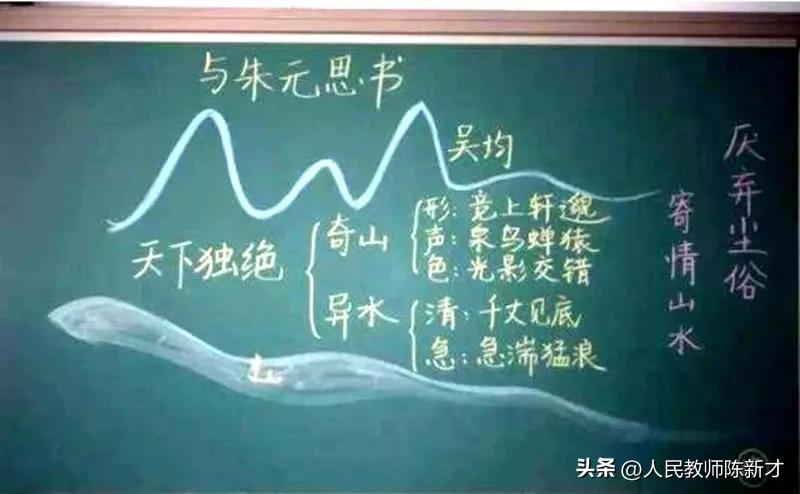 与朱元思书
吴均
天下独绝
奇山
形：竞上轩邈
声：泉鸟蝉猿
色：光影交错
异水
清：千丈见底
急：急湍猛浪
厌弃尘俗
寄情山水
头条 @人民教师陈新才